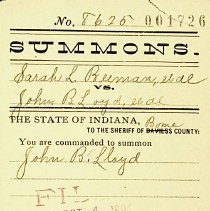 No. 8625 001726
SUMMONS.
Sarah L. Beeman, et al
vs.
John B Loyd, et al
THE STATE OF INDIANA, Boone
TO THE SHERIFF OF DAVIESS COUNTY:
You are commanded to summon
John B. Lloyd
FIL